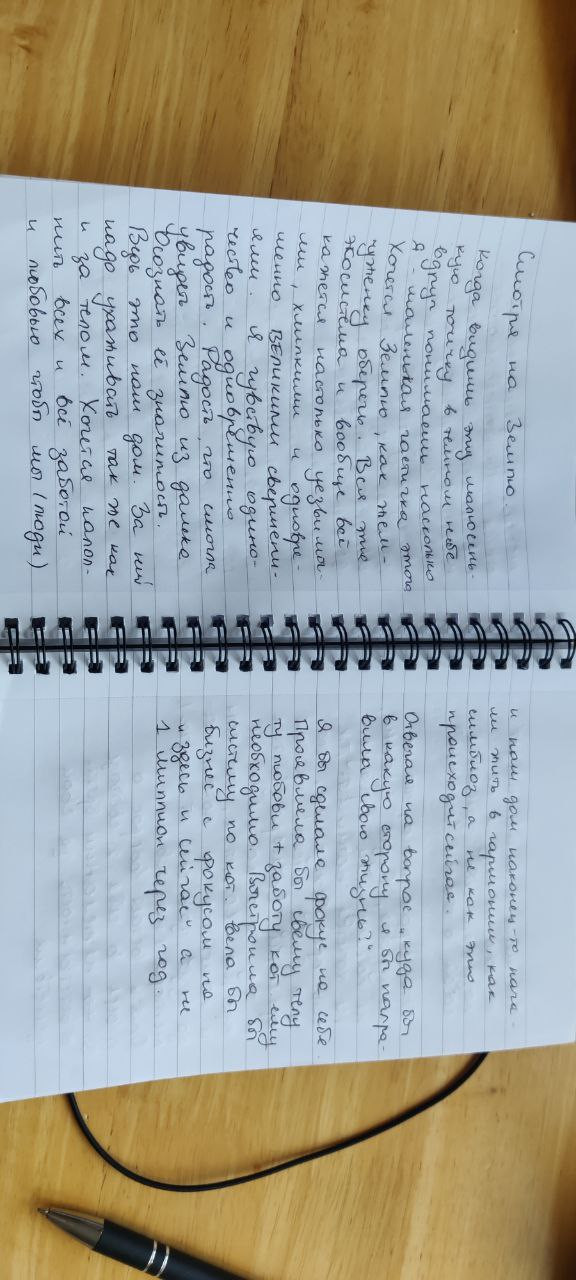 Смотря на Землю.
Когда видишь эту малюсень-
кую точку в темном небе
вдруг понимаешь насколько
я - маленькая частичка этого
Хочется Землю, как жем-
чуженку оберечь. Вся эта
экосистема и вообще всё
кажется настолько уязвимы-
ми, хлипкими и одновре-
менно великими свершени-
ями. Я чувствую одино-
чество и одновременно
радость. Радость, что смогла
увидеть Землю из далека
Осознать её значимость.
Ведь это наш дом. За ней
надо ухаживать так же как
и за телом. Хочется напол-
нить всех и всё заботой
и любовью чтобы мы (люди)
и наш дом наконец-то нача-
ли жить в гармонии, как
симбиоз, а не как это
происходит сейчас.
Отвечая на вопрос "куда бы
в какую сторону я бы напра-
вила свою жизнь?"
Я бы сделала фокус на себе.
Проявляла бы своему телу
ту любовь + заботу кот. ему
необходимо. Выстроила бы
систему по кот. вела бы
бизнес с фокусом на
"здесь и сейчас" а не
1 миллион через год.